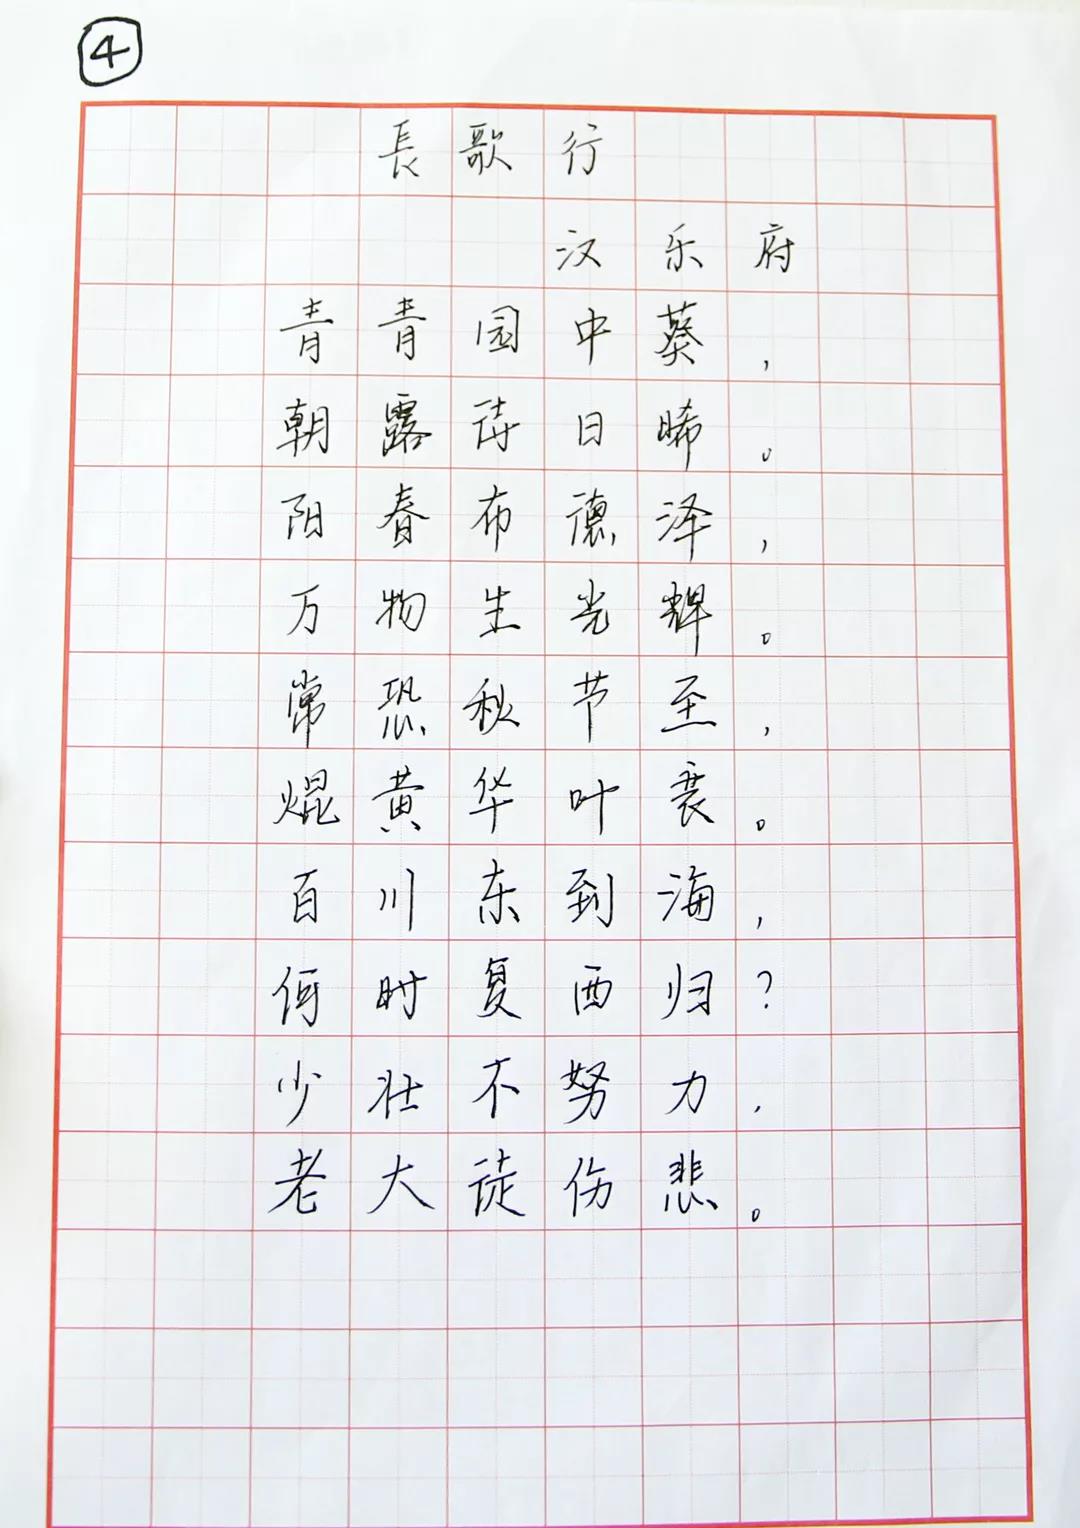 4
長歌行
汉乐府
青青园中葵，
朝露待日晞。
阳春布德泽，
万物生光辉。
常恐秋节至，
焜黄华叶衰。
百川东到海，
何时复西归？
少壮不努力，
老大徒伤悲。